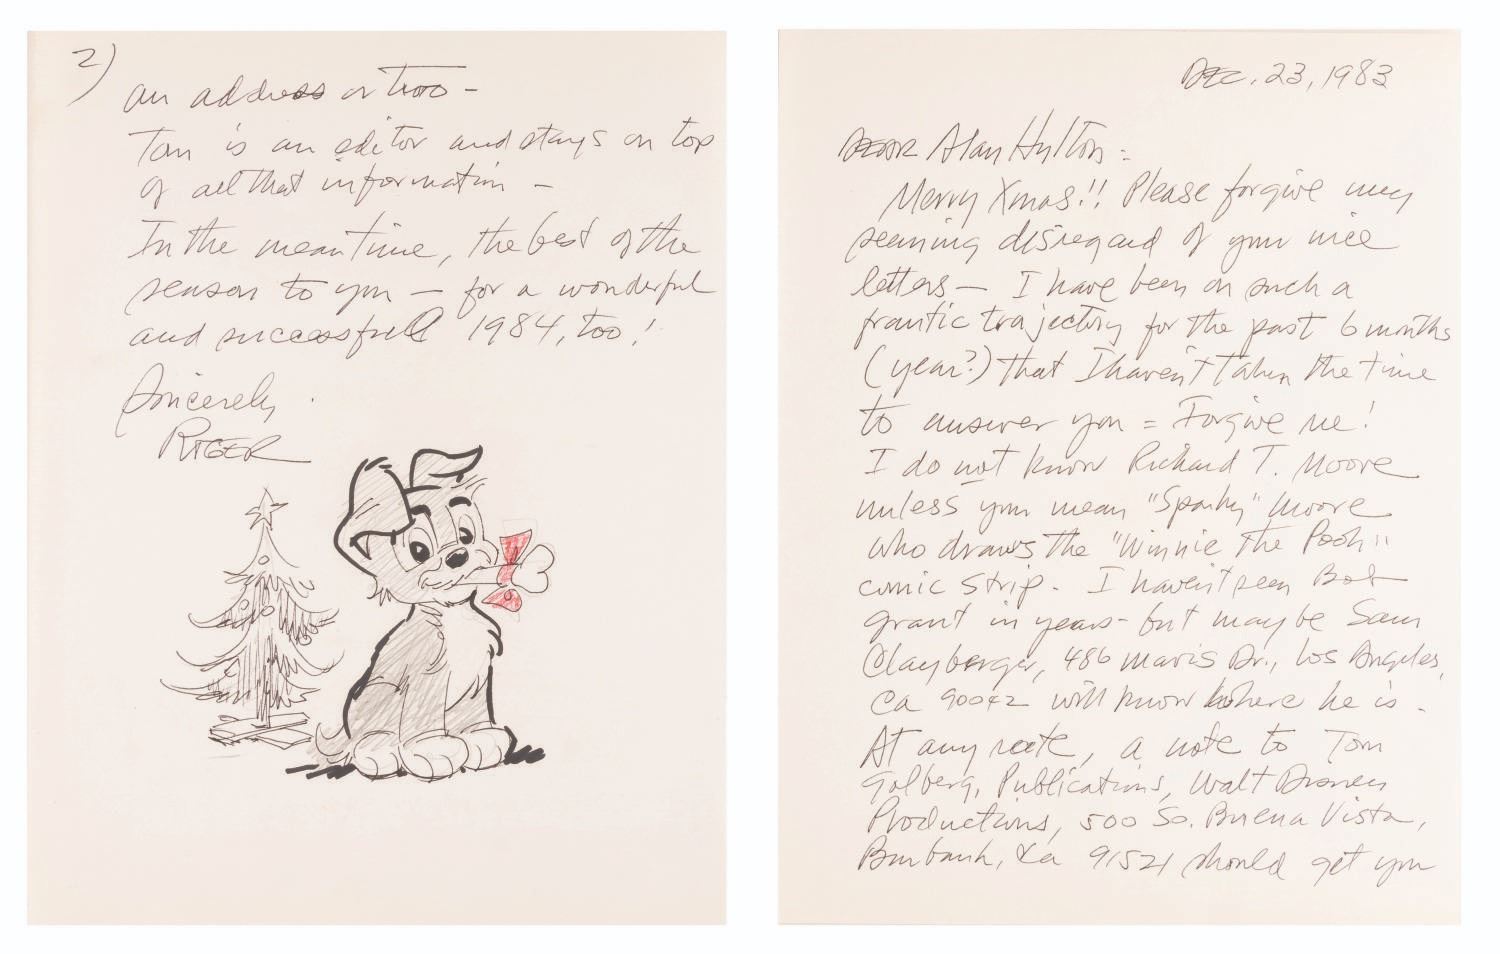 Dec. 23, 1983
Dear Alan Hylton =
Merry Xmas!! Please forgive my
seeming disregard of your nice
letters — I have been on such a
frantic trajectory for the past 6 months
(year?) that I haven't taken the time
to answer you = Forgive me!
I do not know Richard T. Moore
unless you mean "Sparky" Moore
who draws the "Winnie the Pooh"
comic strip. I haven't seen Bob
Grant in years - but maybe Sam
Clayberger, 486 Mavis Dr., Los Angeles,
Ca 90042 will know where he is.
At any rate, a note to Tom
Golberg, Publications, Walt Disney
Productions, 500 So. Buena Vista,
Burbank, Ca 91521 should get you
2)
an address or two —
Tom is an editor and stays on top
of all that information —
In the meantime, the best of the
season to you — for a wonderful
and successful 1984, too!
Sincerely